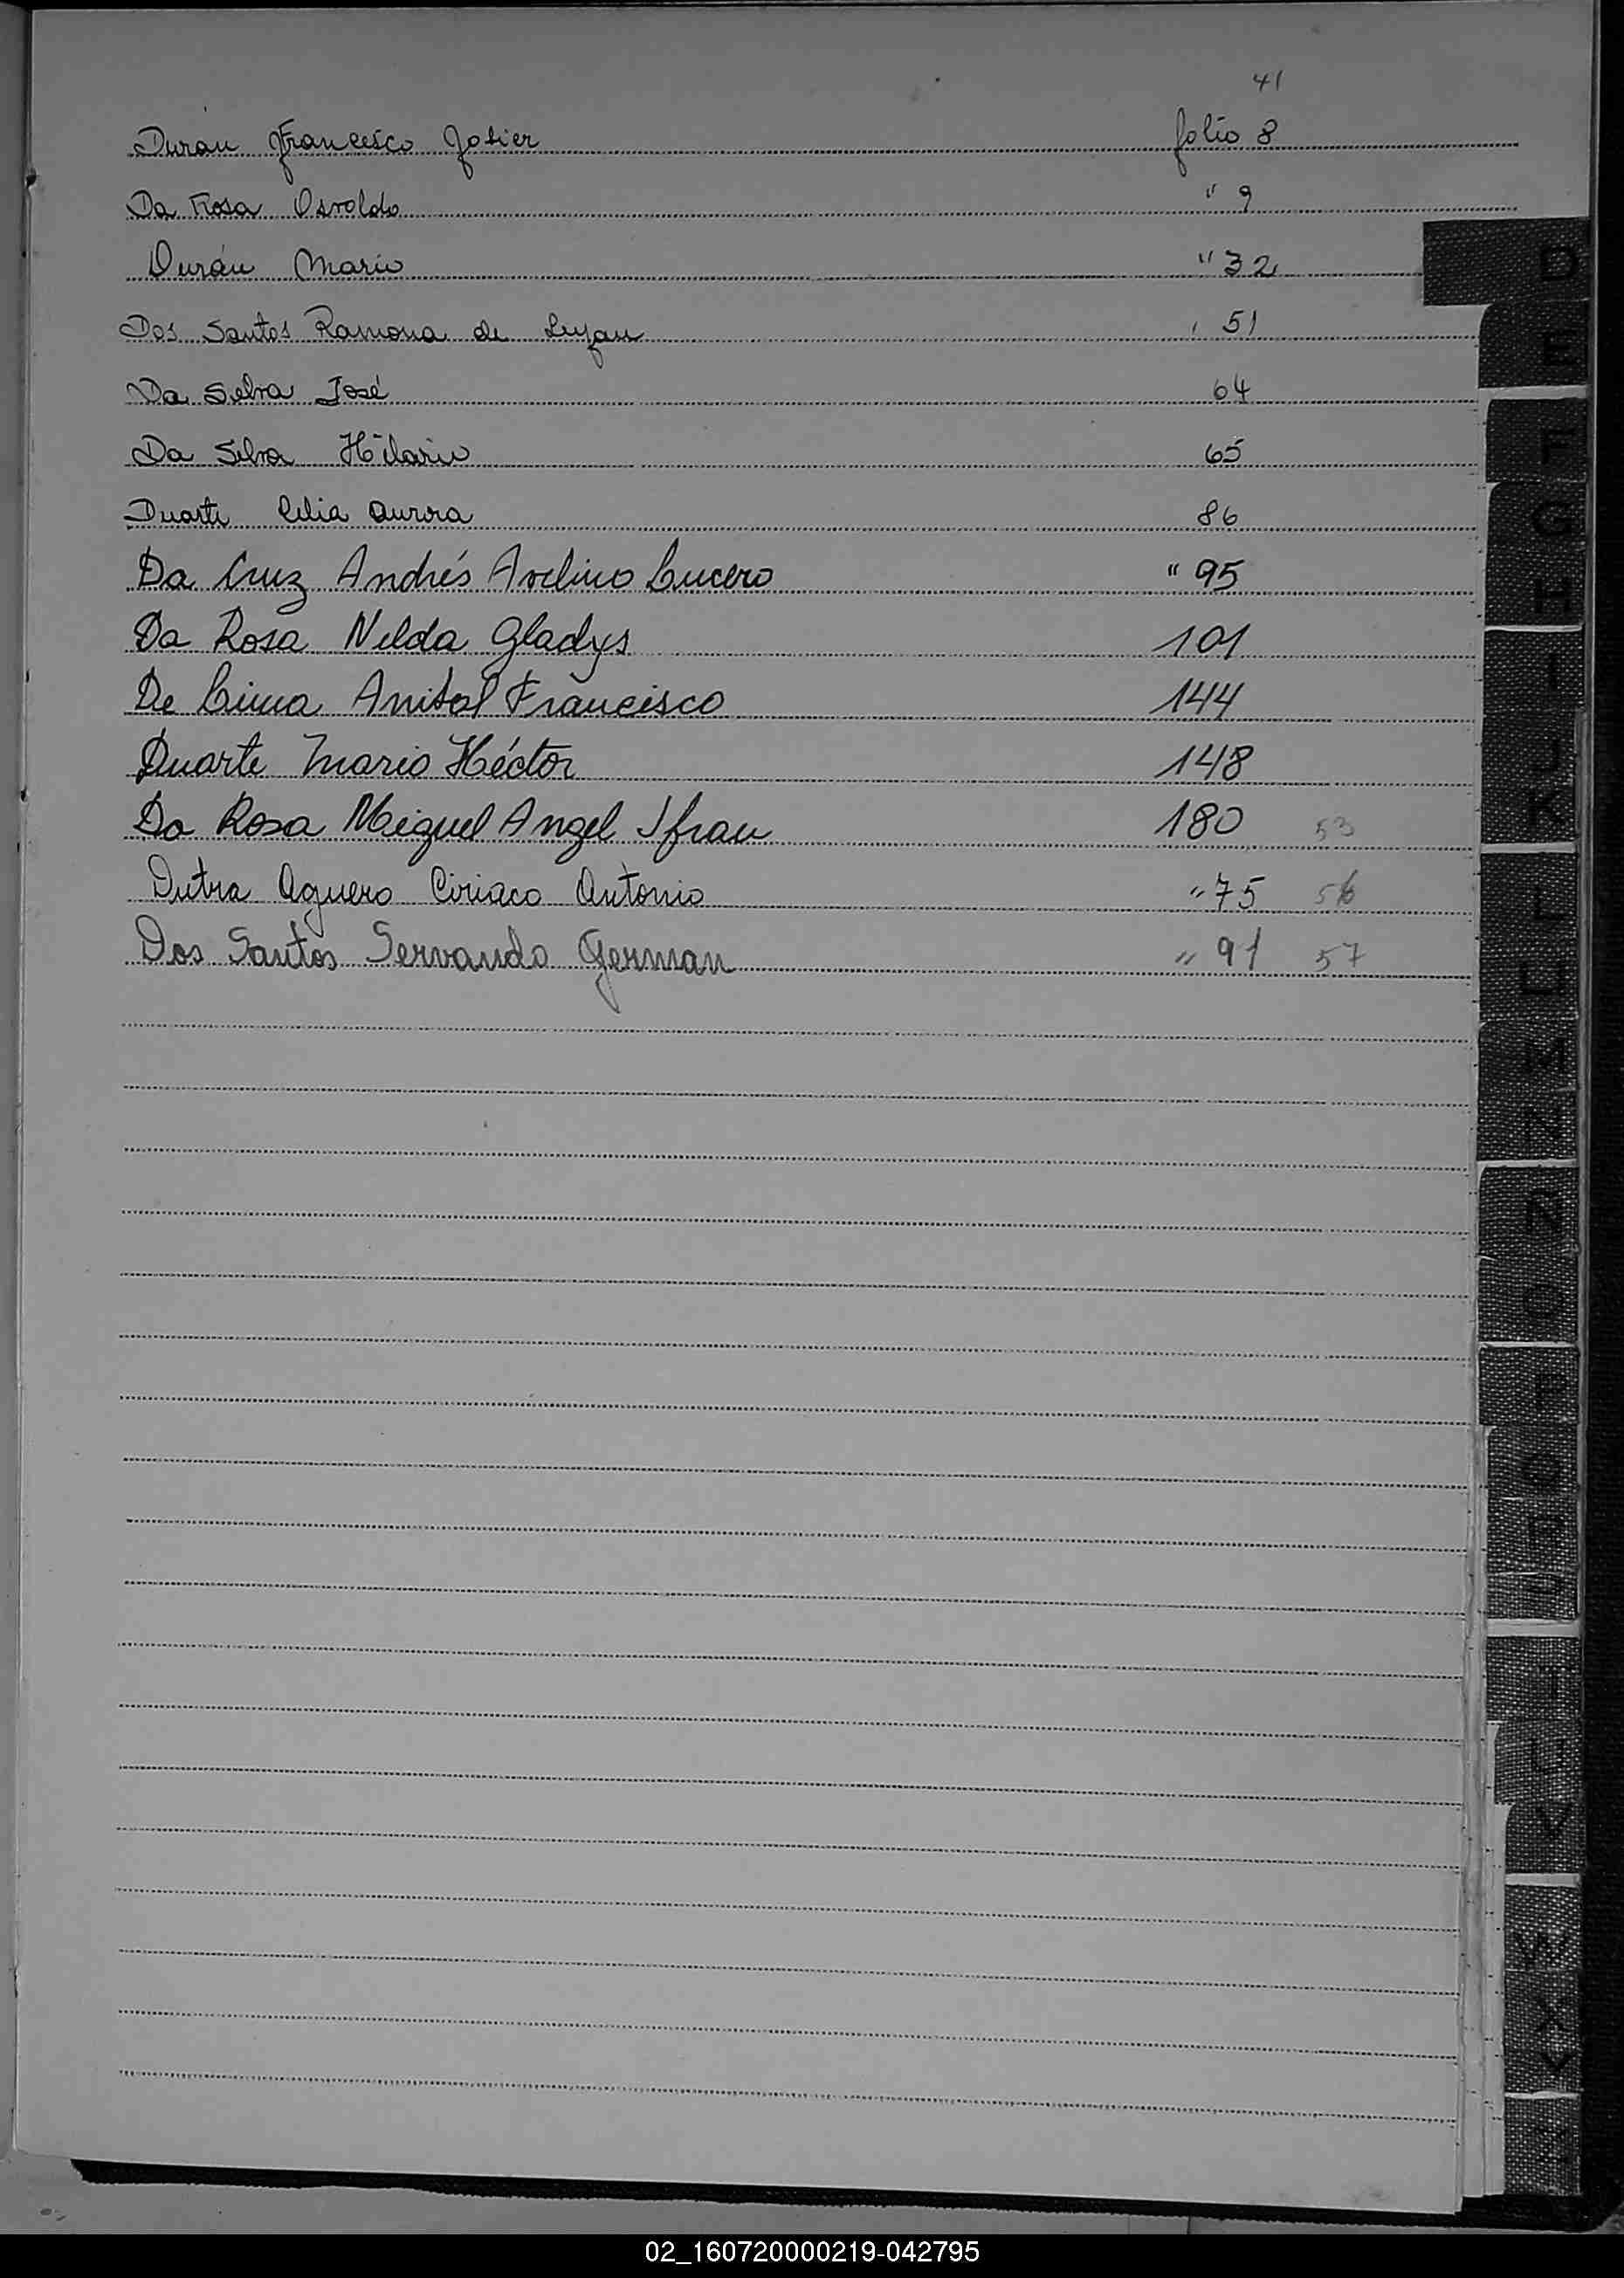 41
Durán Francisco Javier folio 8
Da Rosa Osvaldo " 9
Durán Mario " 32
Dos Santos Ramona de Lujan 51
Da Silva José 64
Da Silva Hilario 65
Duarte Celia Aurora 86
Da Cruz Andrés Avelino Lucero " 95
Da Rosa Nelda Gladys 101
De Lima Anibal Francisco 144
Duarte Mario Héctor 148
Da Rosa Miguel Angel Ifran 180 53
Dutra Aguero Ciriaco Antonio " 75 56
Dos Santos Servando German " 91 57
D
E
F
G
H
I
J
K
L
LL
M
N
Ñ
O
P
Q
R
S
T
U
V
W
X
Y
02_160720000219-042795